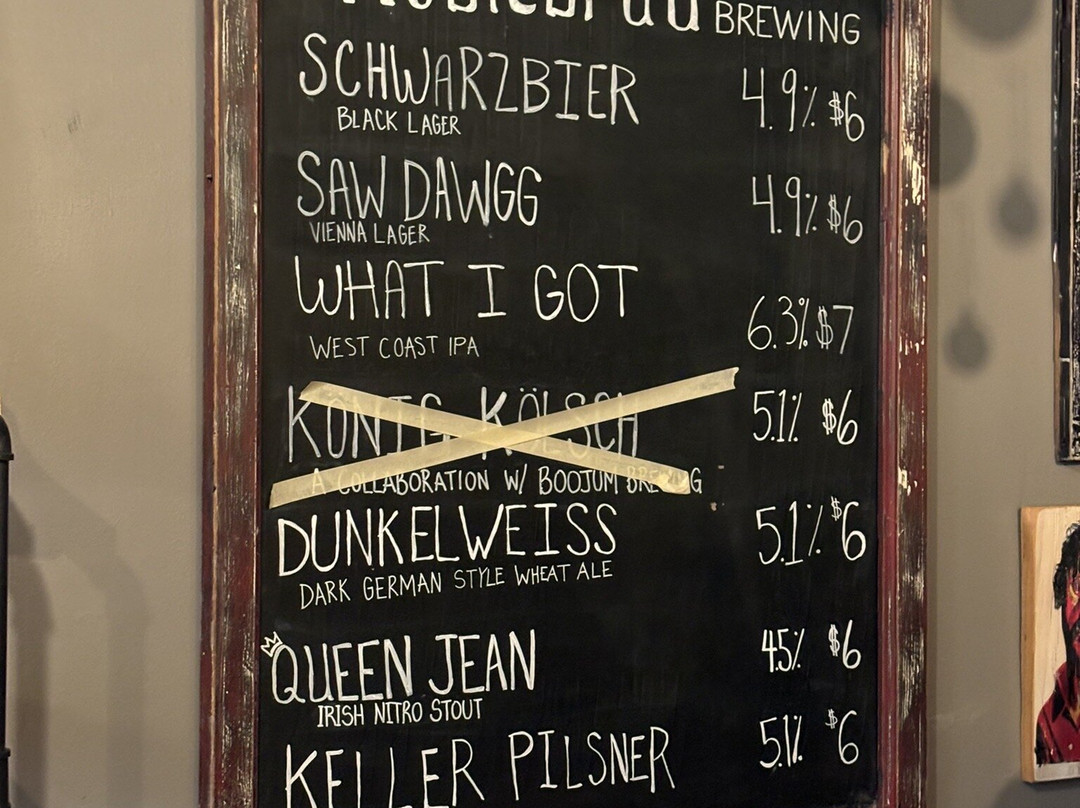 BREWING
SCHWARZBIER 4.9% $6
BLACK LAGER
SAW DAWGG 4.9% $6
VIENNA LAGER
WHAT I GOT 6.3% $7
WEST COAST IPA
KÖNIG KÖLSCH 5.1% $6
A COLLABORATION W/ BOOJUM BREWING
DUNKELWEISS 5.1% $6
DARK GERMAN STYLE WHEAT ALE
QUEEN JEAN 4.5% $6
IRISH NITRO STOUT
KELLER PILSNER 5.1% $6